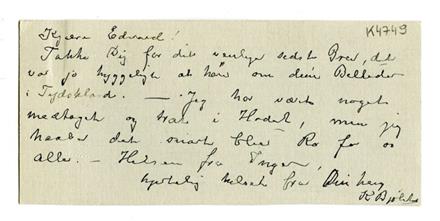 K4749
Kjære Edvard!
Takke Dig for dit venlige sidste Brev, det
var jo hyggeligt at høre om dine Billeder
i Tydskland. — Jeg har været noget
medtaget og træt i Hodet, men jeg
haaber det snart blir Ro for os
alle. — Hilsen fra Inger,
hjertelig hilset fra Din
K Bjølstad